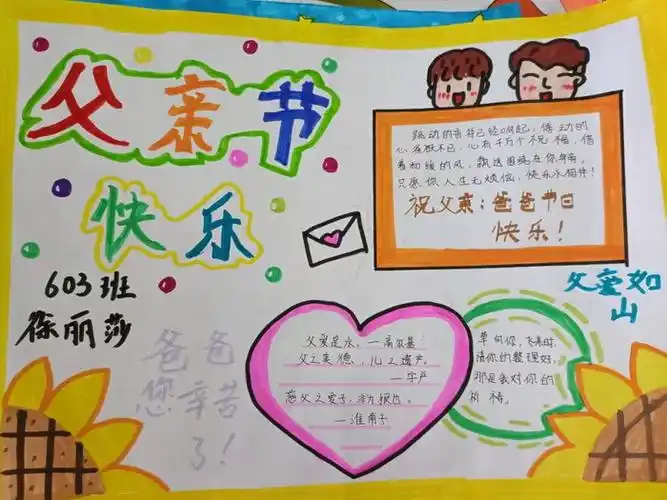 父亲节
快乐
603班
徐丽莎
爸爸
您辛苦
了!
跳动的音符已经响起,传动的
心雀跃不已,心有千万个祝福,借
着和缓的风,飘送围绕在你身旁,
只愿你人生无烦恼,快乐永相伴!
祝父亲:爸爸节日
快乐!
父爱如
山
父爱是水。—高尔基
父之美德,儿之遗产。
—字严
慈父之爱子,非为报也。
—淮南子
草向你,飞来时
请你的整理好,
那是会对你的
祈祷。